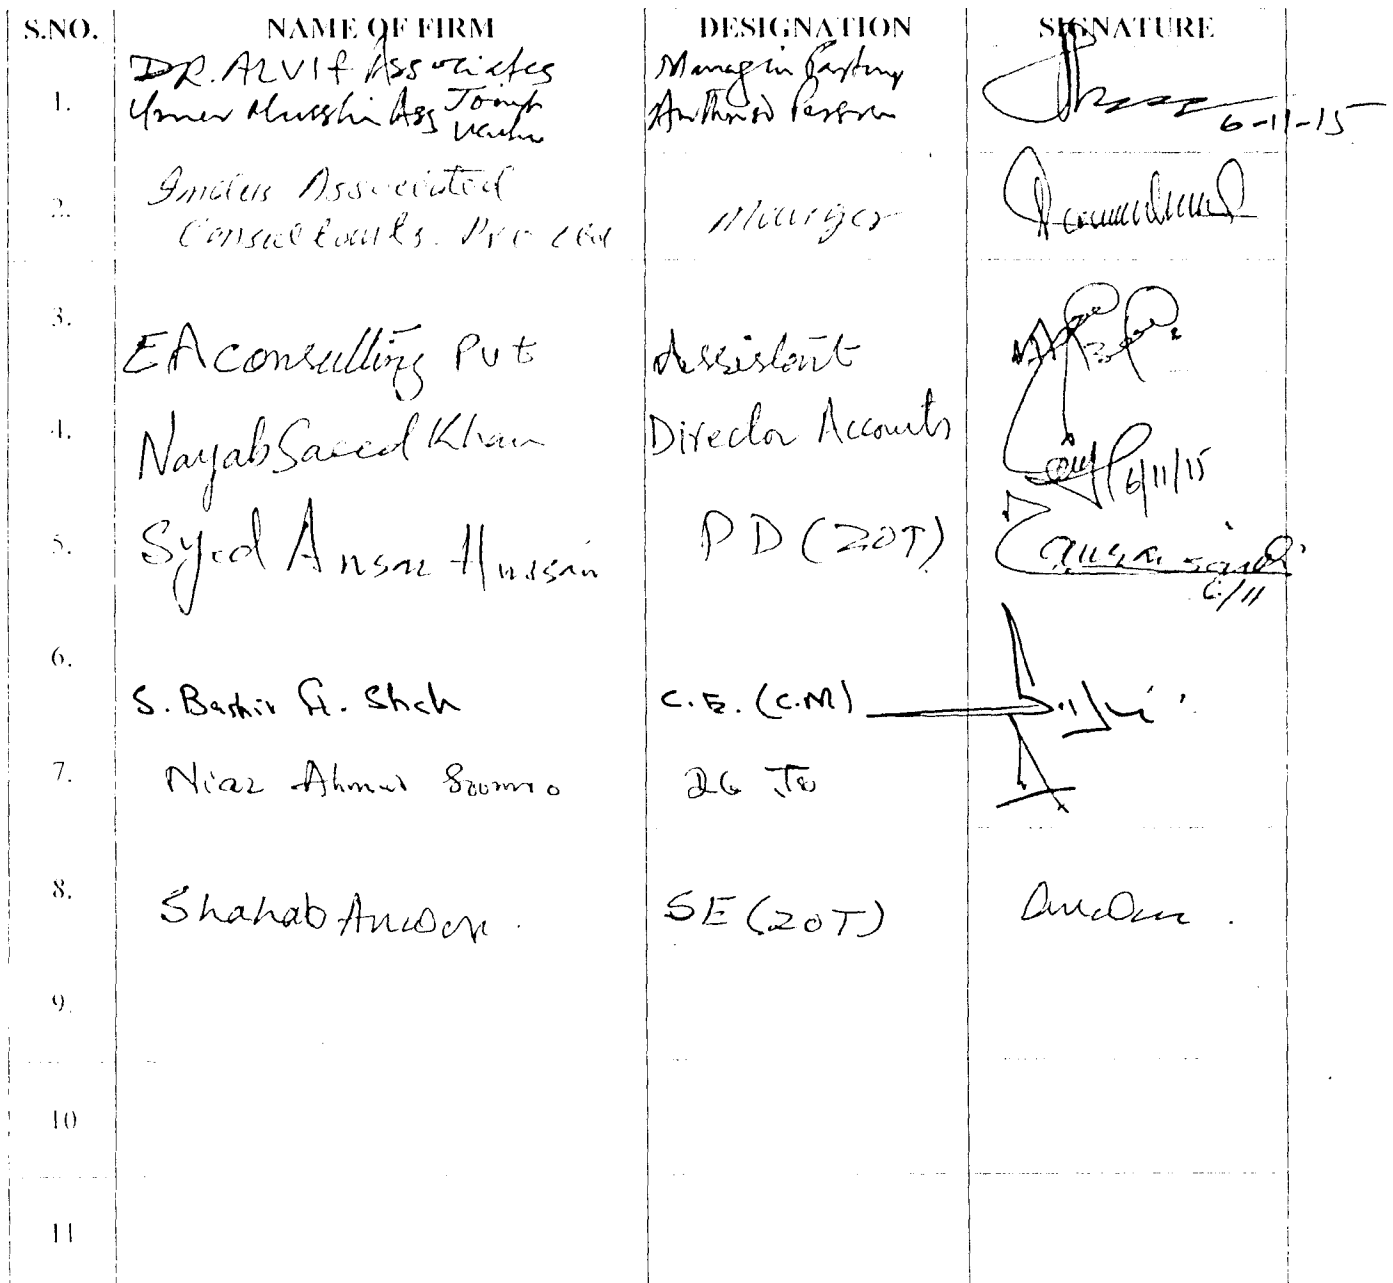 S.NO. NAME OF FIRM DESIGNATION SIGNATURE
DR. ALVI & Associates Managin Partner
1. Umer Munshi Ass Joint Authorised Person
6-11-15
Indus Associated
2. Consultants. Manager
3.
EA consulting Pvt Assistant
4. Nayab Saeed Khan Director Accounts
6/11/15
5. Syed Ansar Hussain PD (ZOT)
6/11
6.
S. Bashir A. Shah C.E. (C.M)
7. Niaz Ahmed Soomro
8. Shahab Anwar. SE (ZOT)
9.
10
11